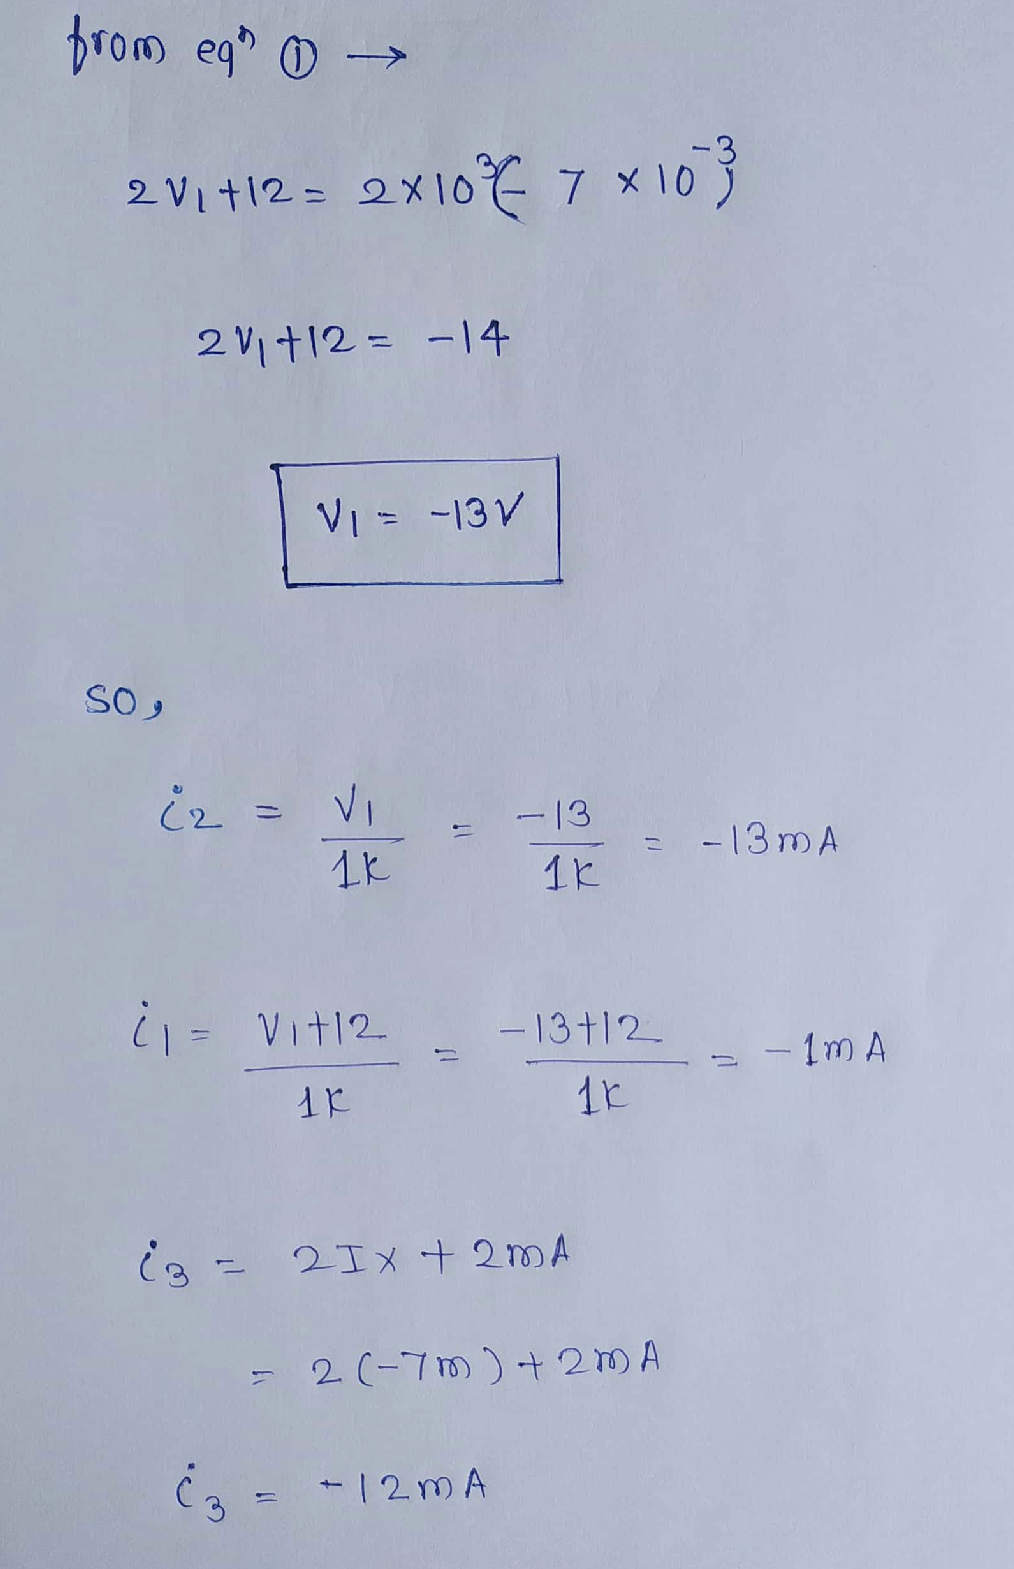 from eqⁿ ① →
2V₁+12 = 2×10³(-7 ×10⁻³)
2V₁+12 = -14
V₁ = -13V
so,
i₂ = V₁/1K = -13/1K = -13mA
i₁ = V₁+12/1K = -13+12/1K = -1mA
i₃ = 2Ix + 2mA
= 2(-7m)+2mA
i₃ = -12mA